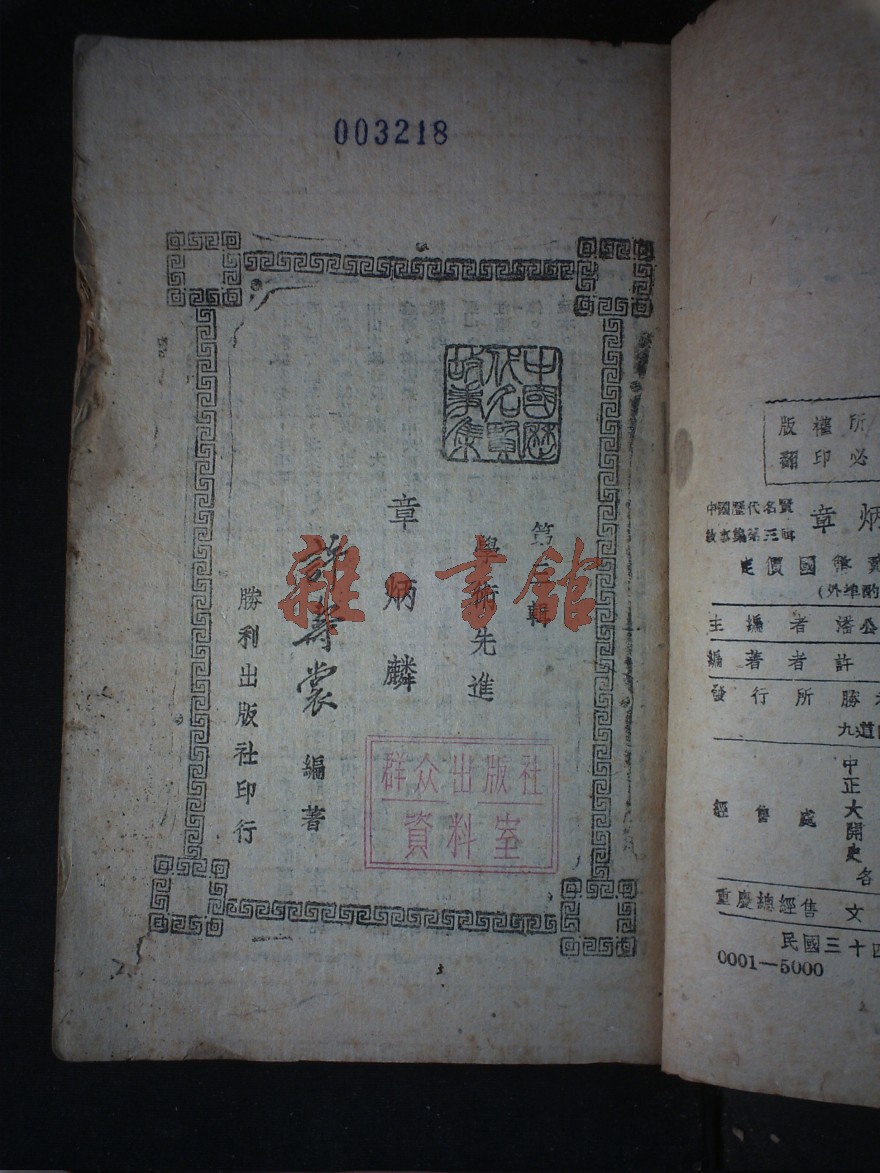 003218
中國歷
代名賢
故事集
第三輯
學術先進
章炳麟
許壽裳 編著
勝利出版社印行
群众出版社
資料室
雜·書館
版權所
翻印必
中國歷代名賢
故事編第三輯
章炳
定價國幣
(外埠酌
主編者 潘公
編著者 許
發行所 勝
九道
經售處
中
正
大
開
史
各
重慶總經售 文
民國三十四
0001—5000